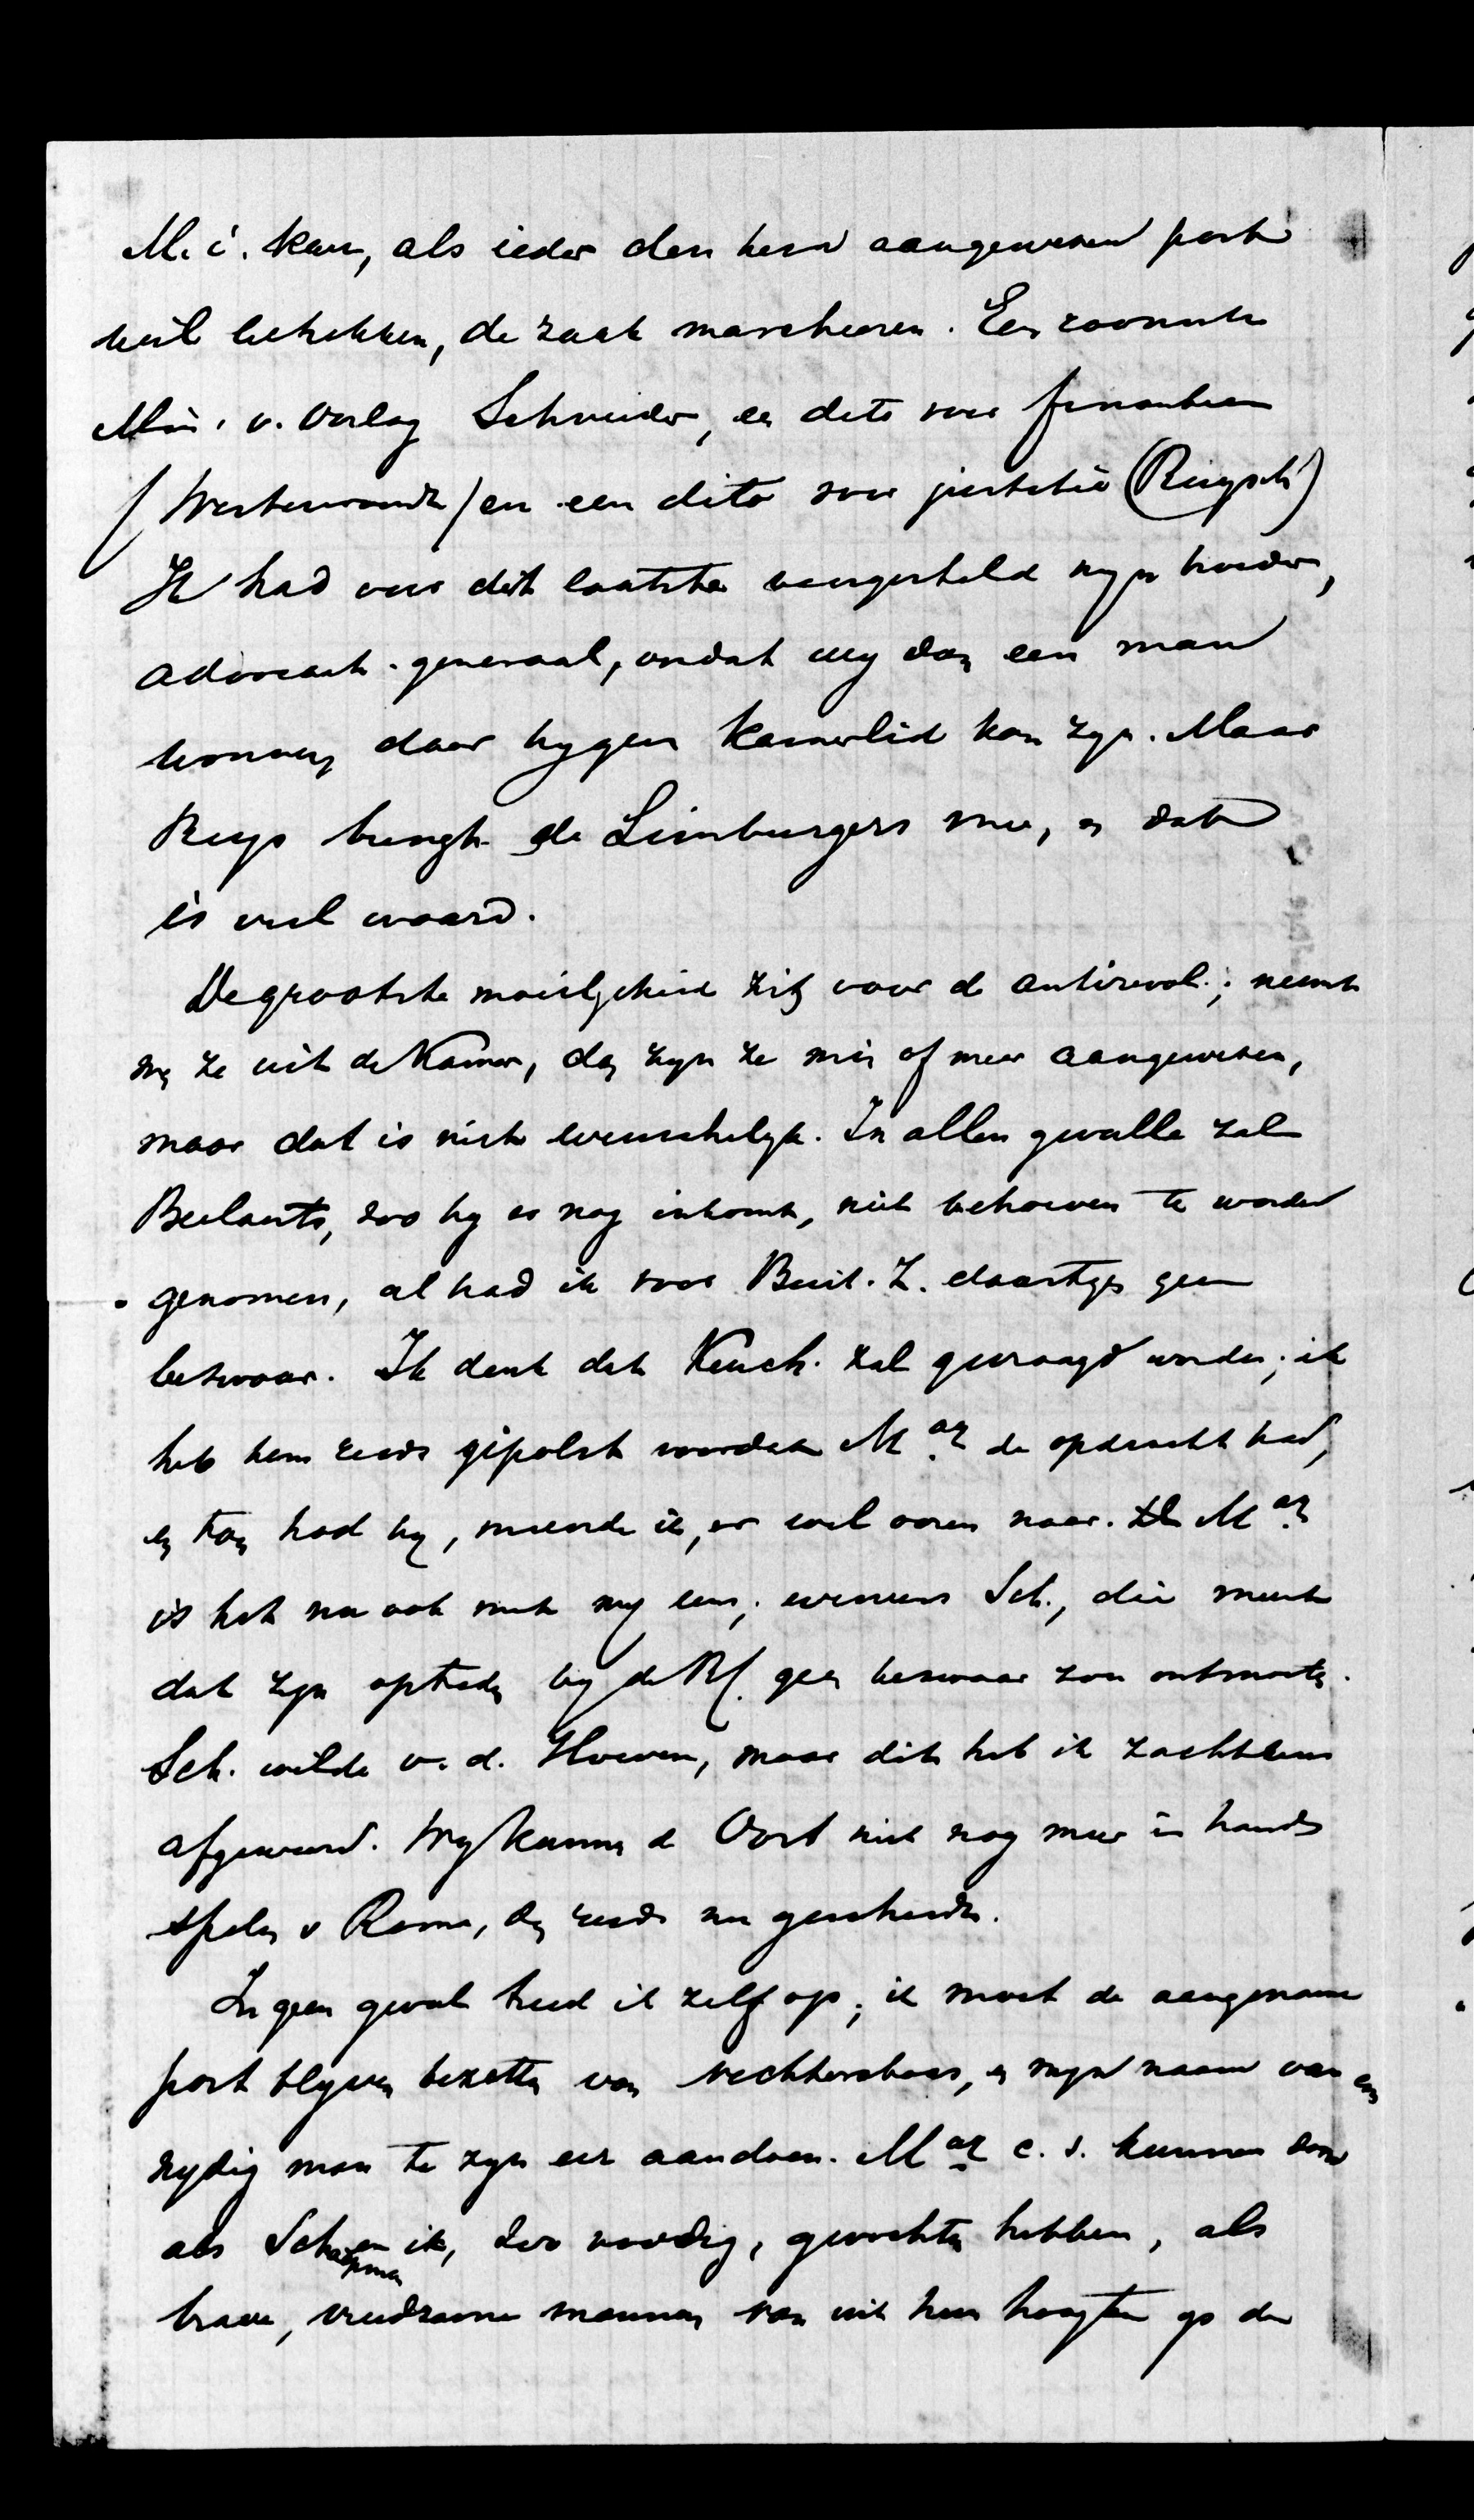 M. i. kan, als ieder den hem aangewezen post
wil betrekken, de zaak marcheeren. Een zoodanige
Min. v. Oorlog Schneider, en dito voor financien
(Westerwoudt) en een dito voor justitie (Ruysch)
Ik had voor dit laatste voorgesteld mijn broeder,
advocaat-generaal, omdat wij dan een man
wonnen, daar hij geen Kamerlid kan zijn. Maar
Ruys brengt de Limburgers mee, en dat
is veel waard.
De grootste moeilijkheid zit voor de antirevol.; neemt
men ze uit de Kamer, dan zijn ze min of meer aangewezen,
maar dat is niet wenschelijk. In allen gevalle zal
Beelaerts, zoo hij er nog inkomt, niet behoeven te worden
genomen, al had ik voor Buit. Z. daartegen geen
bezwaar. Ik denk dat Keuch. zal gevraagd worden; ik
heb hem reeds gepolst voordat M.az de opdracht had,
en toen had hij, meende ik, er wel ooren naar. M.az
is het nu ook met mij eens; eveneens Sch., die meent
dat zijn optreden bij de R. geen bezwaar zou ontmoeten.
Sch. wilde v. d. Hoeven, maar dit heb ik zachtkens
afgeweerd. Wij kunnen de Oost niet nog meer in handen
spelen v Rome, dan reeds nu geschiedt.
In geen geval treed ik zelf op; ik moet de aangename
post blijven bezetten van vechtersbaas, en mijn naam van een
nijdig man te zijn eer aandoen. M.az c. s. kunnen dan
als Schaepman en ik, zoo noodig, gevochten hebben, als
brave, vreedzame mannen van uit hun hoogten op de